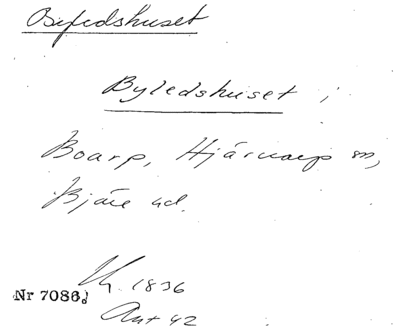 Byledshuset
Byledshuset i
Boarp, Hjärnarp sn,
Bjäre hd.
Nr 7086.
1836
42